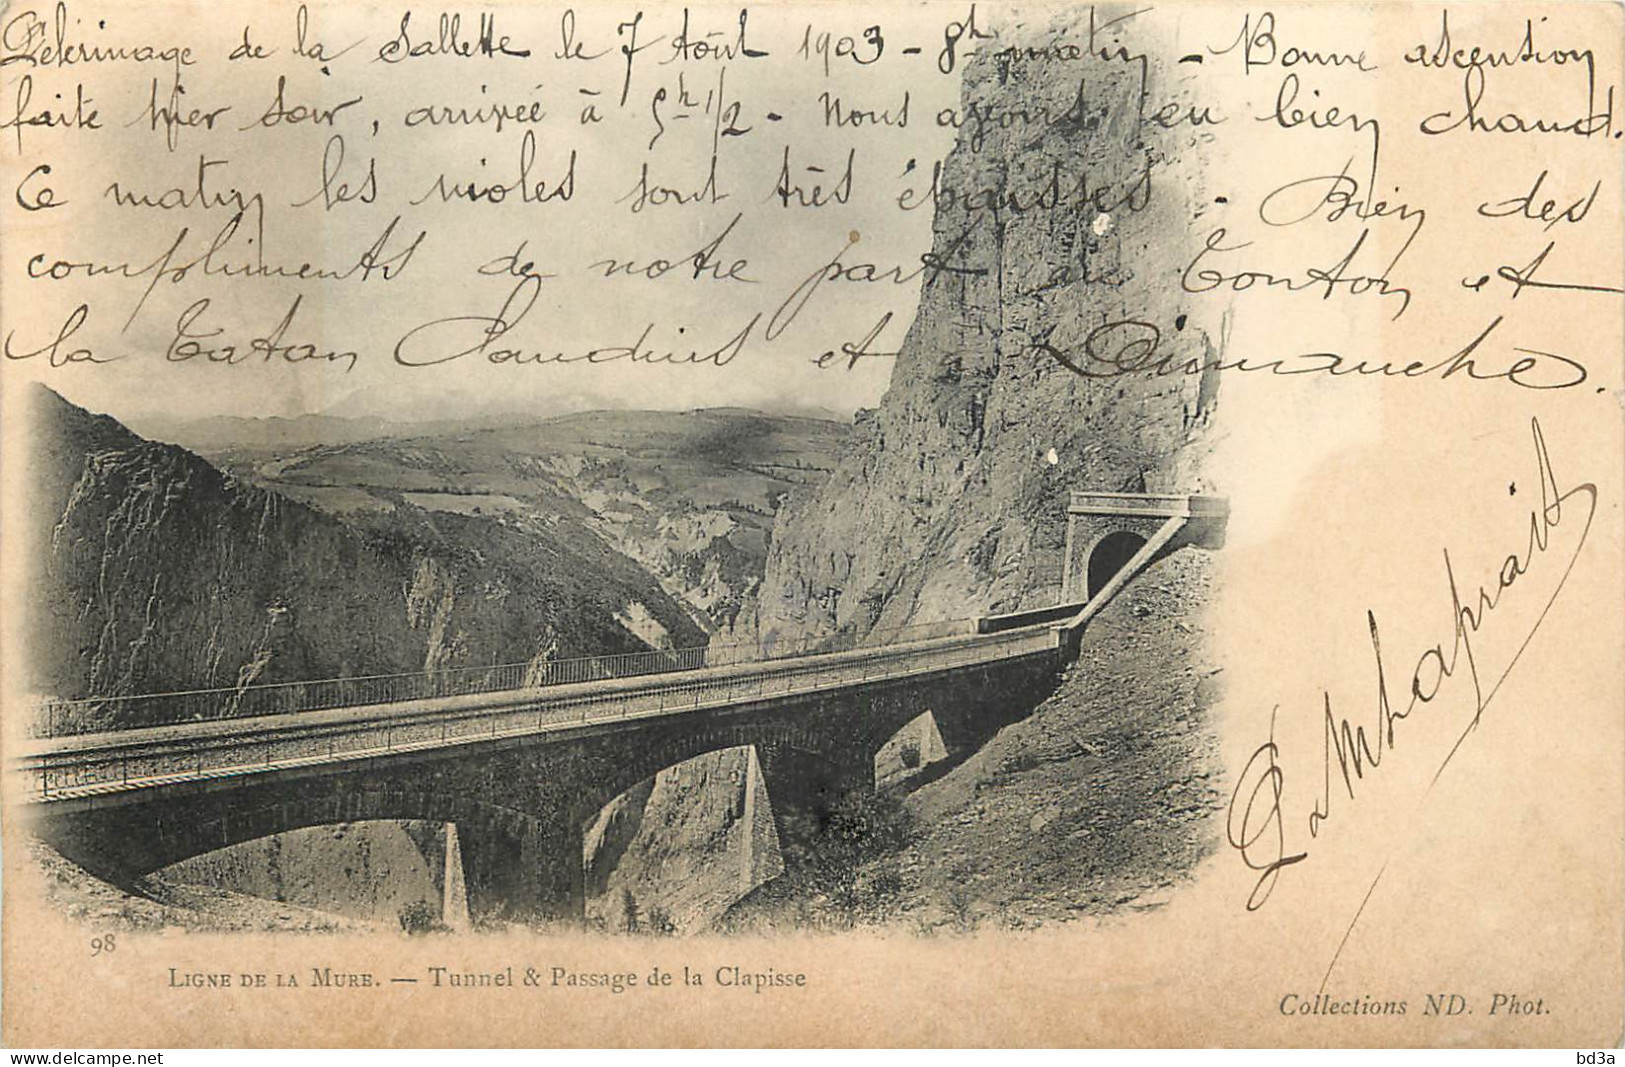 Pélérinage de la Sallette le 7 Août 1903 - 8h matin - Bonne ascension
faite hier soir, arrivée à 5h 1/2 - Nous avons eu bien chaud.
Ce matin les violes sont très épaisses - Bien des
compliments de notre part au Tonton et
la Tatan Claudius et à Dimanche.
98
LIGNE DE LA MURE. — Tunnel & Passage de la Clapisse
Collections ND. Phot.
bd3a
delcampe.net